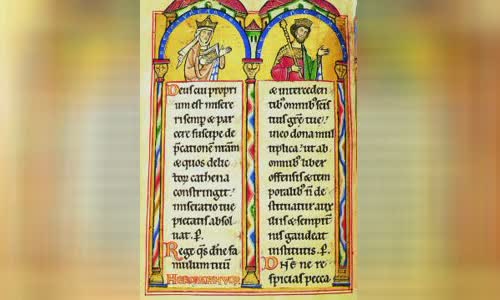 Deus cui propri
um est misere
ri semp & par
cere suscipe de
p̄cationē nr̄am
& quos delic
toꝝ cathena
constringit:
miseratio tue
pietatis absol
uat. P.
Rege qs dn̄e fa
mulum tuū
& interceden
tib' omnib' scīs
tuis grē tue:
in eo dona mul
tiplica: ut ab
omnib' liber
offensis & tem
poralib' n̄ de
stituatur aux
iliis & sempit'
nis gaudeat
institutis. P.
ne re
spicias pecca